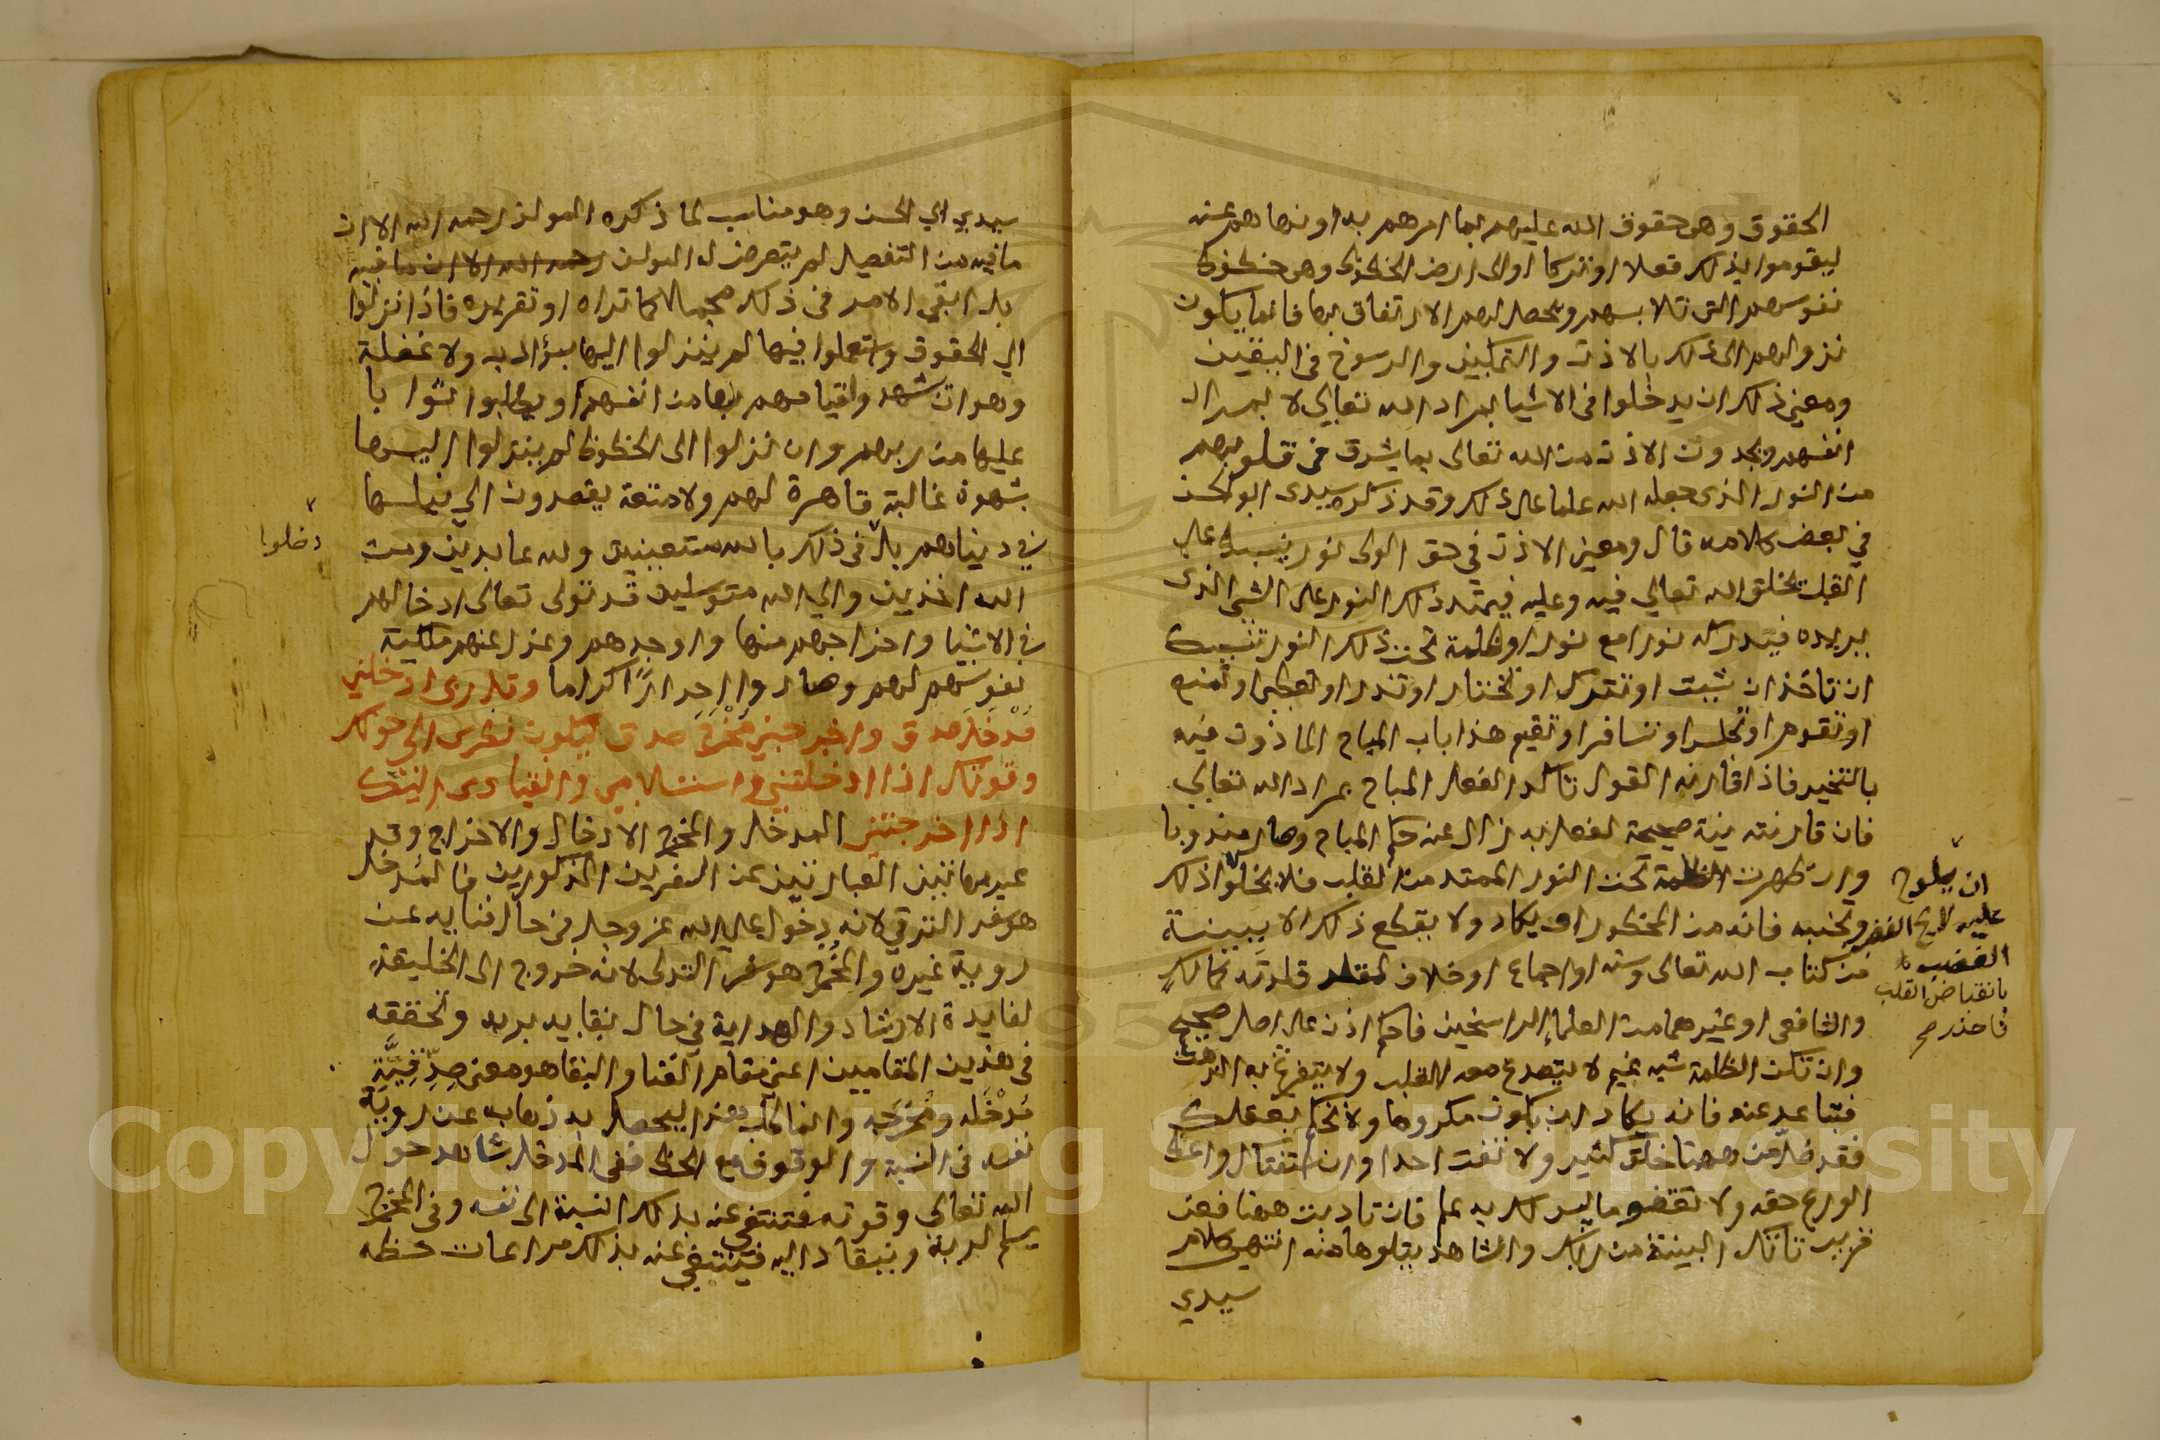 الحقوق وهي حقوق الله عليهم بما امرهم به او نهاهم عنه
ليقوموا بذلك فعلا او تركا او الى ارض الحظوظ وهي حظوظ
نفوسهم التي تلابسهم ويحصل لهم الارتفاق بها فانما يكون
نزولهم الى ذلك بالاذن والتمكين والرسوخ في اليقين
ومعنى ذلك ان يدخلوا في الاشيا بمراد الله تعالي لا بمراد
انفسهم ويجدون الاذن من الله تعالى بما يشرق في قلوبهم
من النور الذي جعله الله علما على ذلك وقد ذكره سيدى ابو الحسن
في بعض كلامه قال ومعنى الاذن في حق الولى نور ينبسط على
القلب يخلقه الله تعالي فيه وعليه فيمتد ذلك النور على الشي الذى
يريده فيدركه نور مع نور او ظلمة تحت ذلك النور تنبيك
ان تاخذ ان شيت او تترك او تختار او تدبر او تعطي او تمنع
او تقوم او تجلس او تسافر او تقيم هذا باب المباح الماذون فيه
بالتخيير فاذا قارنه القول تاكد الفعل المباح بمراد الله تعالي
فان قارنته نية صحيحة لفعل به زال عنه حكم المباح وصار مندوبا
وان ظهرت الظلمة تحت النور الممتد من القلب فلا يخلوا ذلك
ان يلوح
عليه لايح القبض
القضب
بانقباض القلب
فاحذر صح
وتجنبه فانه من المحظور او يكاد ولا يقطع ذلك الا ببينة
من كتاب الله تعالى وسنة او اجماع او خلاف لمقلد قلدته كمالك
والشافعي او غيرهما من العلما الراسخين فاحكم اذن على اصل صحيح
وان تكن الظلمة شبه غيم لا يتصدع معه القلب ولا يتفرغ به الذهن
فتباعد عنه فانه يكاد ان يكون مكروها ولا تحكم بعقلك
فقد ضل من ههنا خلق كثير ولا تفت احدا وان استفتاك واعط
الورع حقه ولا تقف ما ليس لك به علم فان تادبت ههنا فعن
قريب تاتك البينة من ربك والشاهد يتلوها منه انتهى كلام
سيدي
سيدي ابي الحسن وهو مناسب لما ذكره المولف رحمه الله الا ان
ما فيه من التفصيل لم يتعرض له المولف رحمه الله الا ان ما فيه
بل ابقي الامر في ذلك مجملا كما تراه او تقريره فاذا نزلوا
الي الحقوق واستعملوا فيها لم ينزلوا اليها بسؤ ادب ولا غفلة
وهو ان شهدوا قيامهم بها من انفسهم او يطلبوا ثوابا
عليها من ربهم وان نزلوا الى الحظوظ لم ينزلوا اليها
بشهوة غالبة قاهرة لهم ولا متعة يقصدون الي نيلها
في دنياهم بل في ذلك بالله مستعينين ولله عابدين ومن
دخلوا
الله اخذين والي الله متوسلين قد تولى تعالى ادخالهم
في الاشيا واخراجهم منها واوجدهم وعزل عنهم ملكية
نفوسهم لهم وصاروا احرارًا اكراما وقل رب ادخلني
مُدْخَل صدق واخرجني مُخْرَج صدق ليكون نظرى الي حولك
وقوتك اذا ادخلتني واستسلامي وانقيادى اليك
اذا اخرجتني المدخل والمخرج الادخال والاخراج وقد
عبر بهاتين العبارتين عن السفرين المذكورين فالمُدخل
هو سفر الترقي لانه دخول على الله عز وجل في حال فنايه عن
روية غيره والمُخْرج هو سفر التدلى لانه خروج الى الخليقة
لفايدة الارشاد والهداية في حال بقايه بربه وتحققه
في هذين المقامين اعني مقام الفنا والبقا هو معنى صِدِّقِيَّةِ
مُدْخَله ومُخْرَجه وانما طلب هذا ليحصل به ذهاب عن روية
نفسه في النسبة والوقوف مع الحظ ففي المدخل شاهد حول
الله تعالى وقوته فتنتفي عنه بذلك النسبة الى نفسه وفي المخرج
يسلم لربه وينقاد اليه فينتفي عنه بذلك مراعات حظه
Copyright © King Saud University